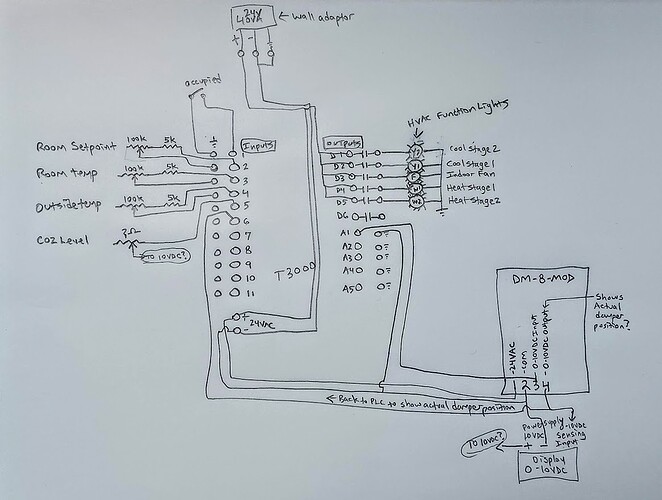 24V
40VA
← Wall adaptor
+ -
occupied
HVAC Function Lights
Inputs
Outputs
Room Setpoint
100k
5k
Room temp
100k
Outside temp
100k
5k
CO2 Level
3Ω
TO 10VDC?
1
2
3
4
5
6
7
8
9
10
11
T3000
D1
D2
D3
D4
D5
D6
A1
A2
A3
A4
A5
Y2
Y1
F
W1
W2
Cool Stage 2
Cool Stage 1
Indoor Fan
Heat Stage 1
Heat Stage 2
+
-
24VAC
DM-8-MOD
-24VAC
-COM
-0-10VDC Input
-0-10VDC Output
1 2 3 4
Shows
Actual
damper
position?
← Back to PLC to show actual damper position
Power Supply
10VDC
+ -
0-10VDC
Sensing
Input
TO 10VDC?
Display
0-10VDC